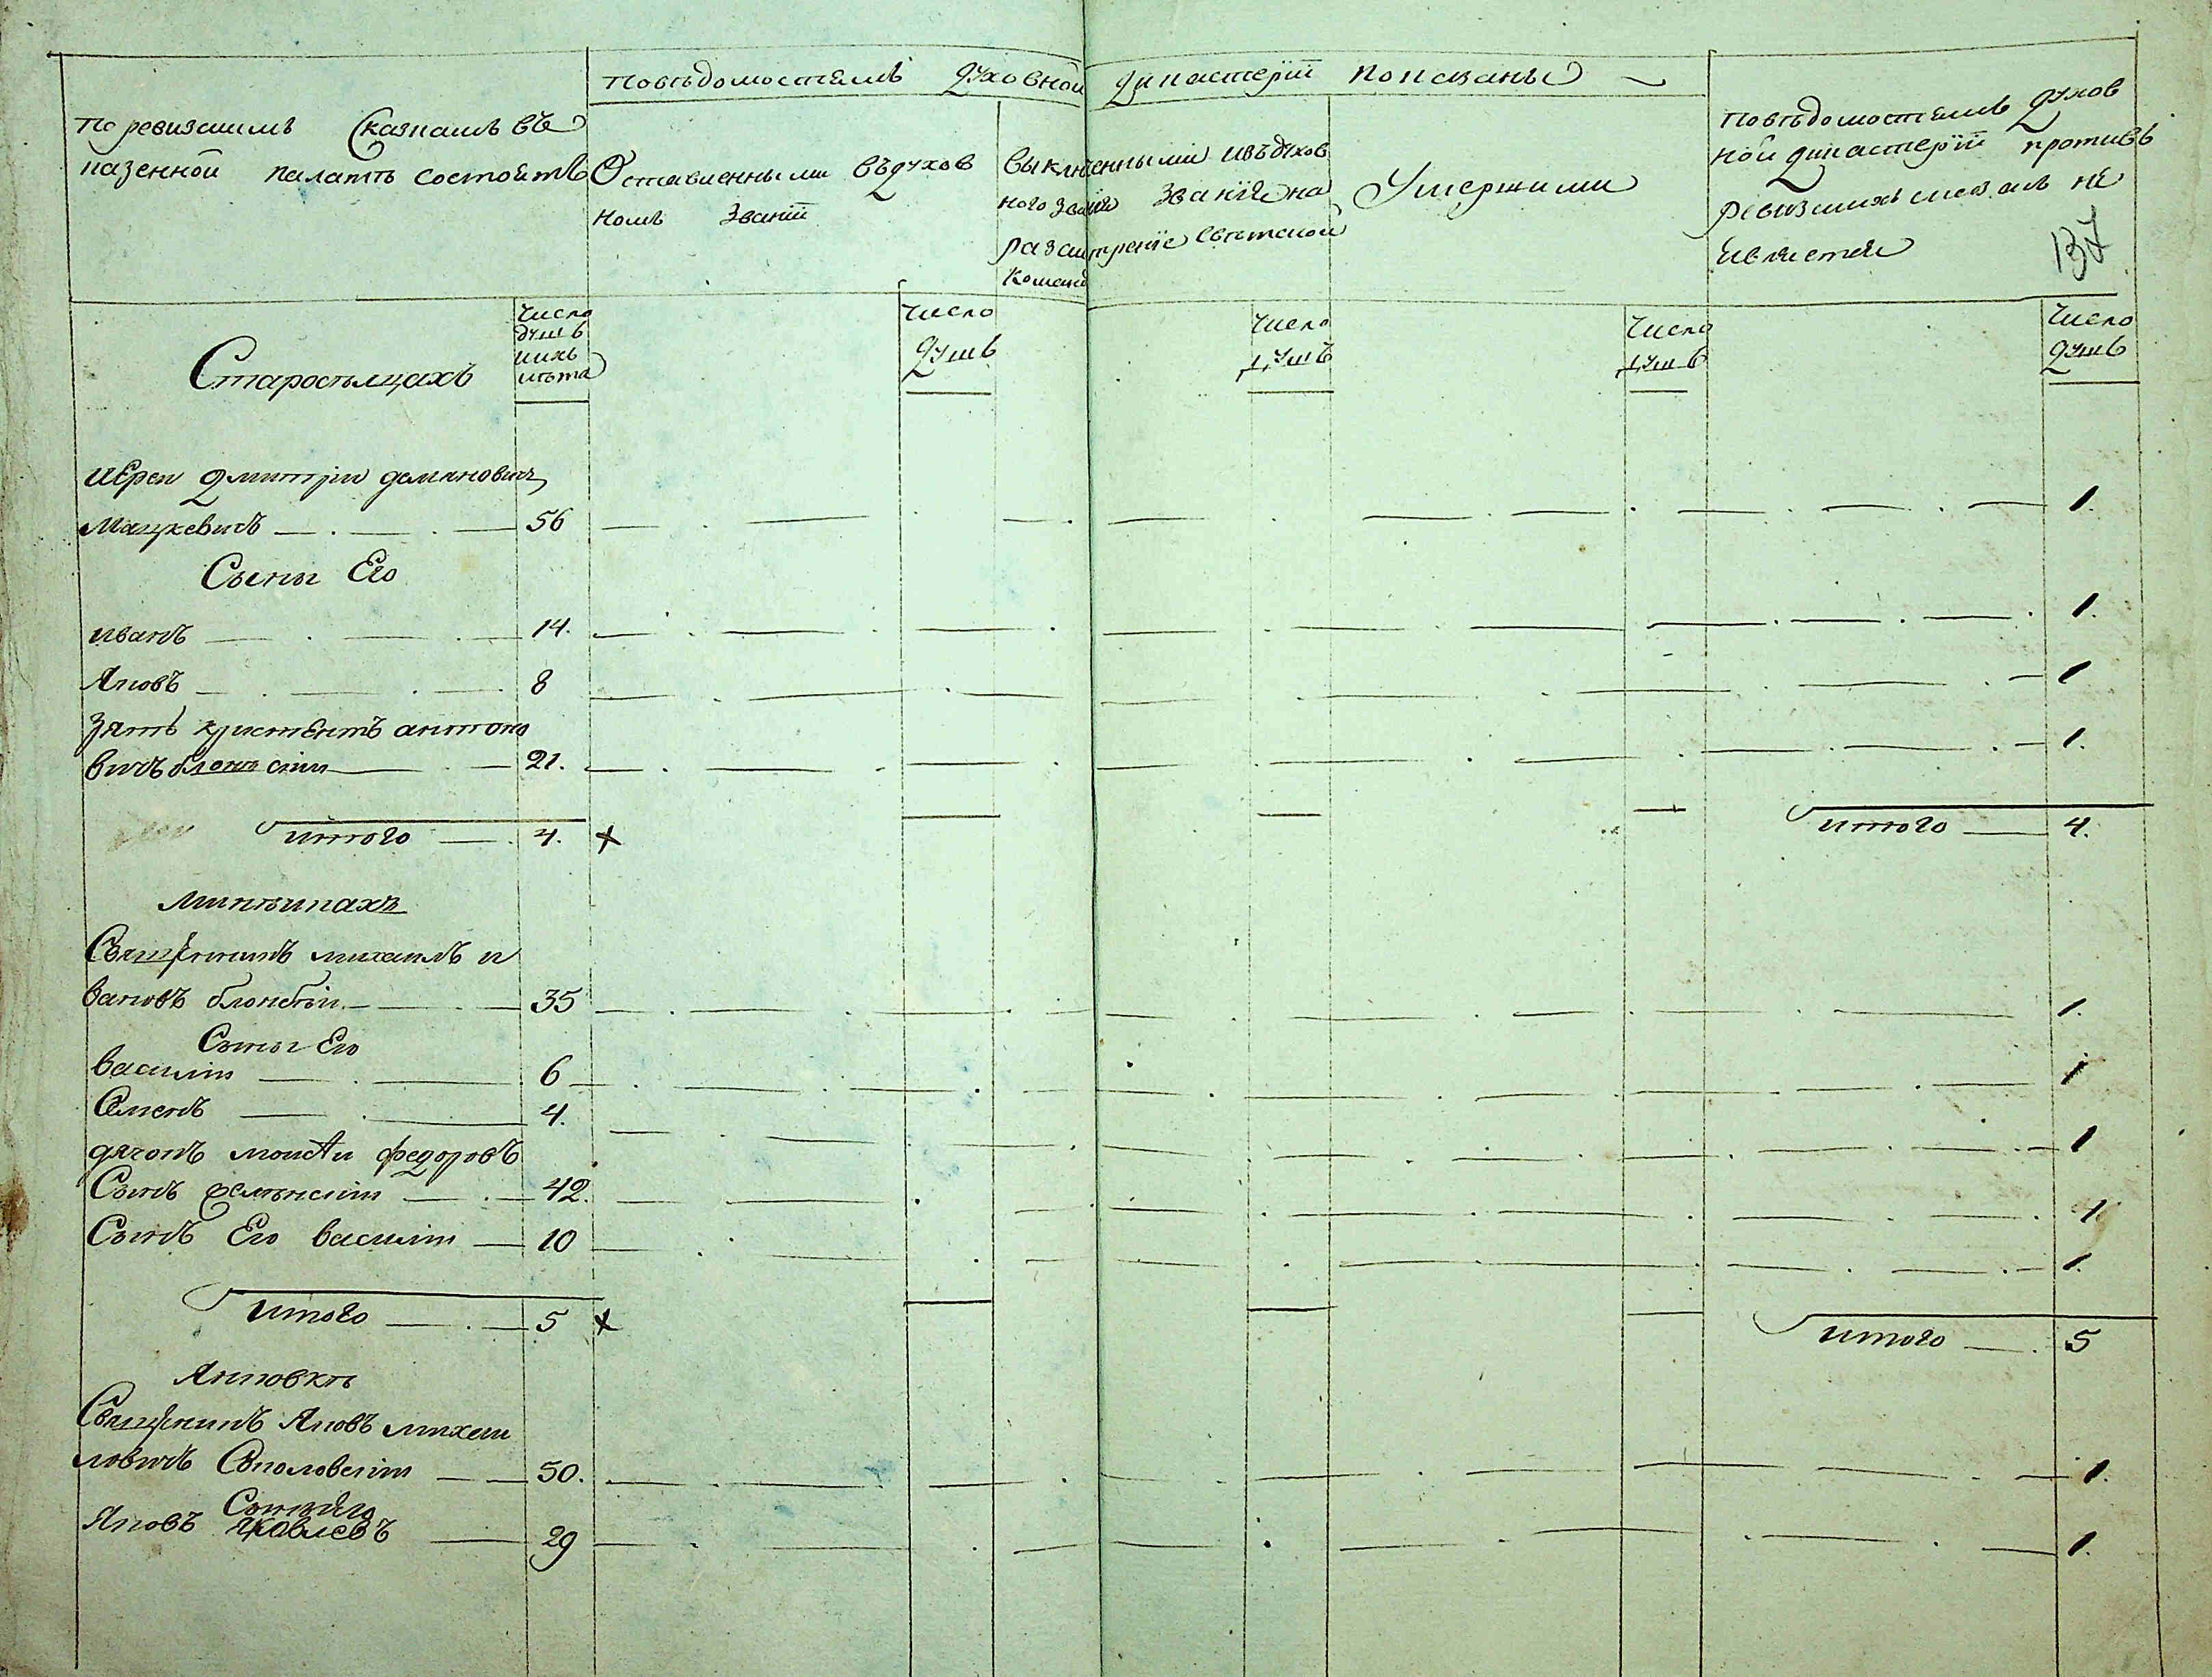 Поревизскимъ Сказкамъ въ
казенной палатѣ состоитъ
Повѣдомостямъ духовной дикастерїи показаны
Оставленными въдухов
номъ званїи
выключенными изъдухов
ного званїя званїя на
разсмтренїе свѣтской
Команд
Умершими
Повѣдомостямъ духов
ной дикастерїи противъ
ревизскихъ сказакъ не
явяется
137
Старосѣлцахъ
Число
душъ
ихъ
лѣта
Число
душъ
Число
душъ
Число
душъ
Число
душъ
иЕреи дмитрiи
Мацкевичъ 56 1.
Сыны Его
иванъ 14. 1.
Яковъ 8 1
Зять антоно
вичъ 21. 1.
итого 4. итого 4.
минковцахъ
Священникъ михаилъ и
вановъ 35 1.
Сыны Его
василiи 6 1
Семенъ 4. 1
дячокъ моисеи федоровъ
Сынъ 42. 1
Сынъ Его василiи 10 1.
итого 5 итого 5
Яновкѣ
Священникъ Яковъ михаи
ловичъ 50. 1.
Сынъ его
Яковъ яковлевъ 29 1.